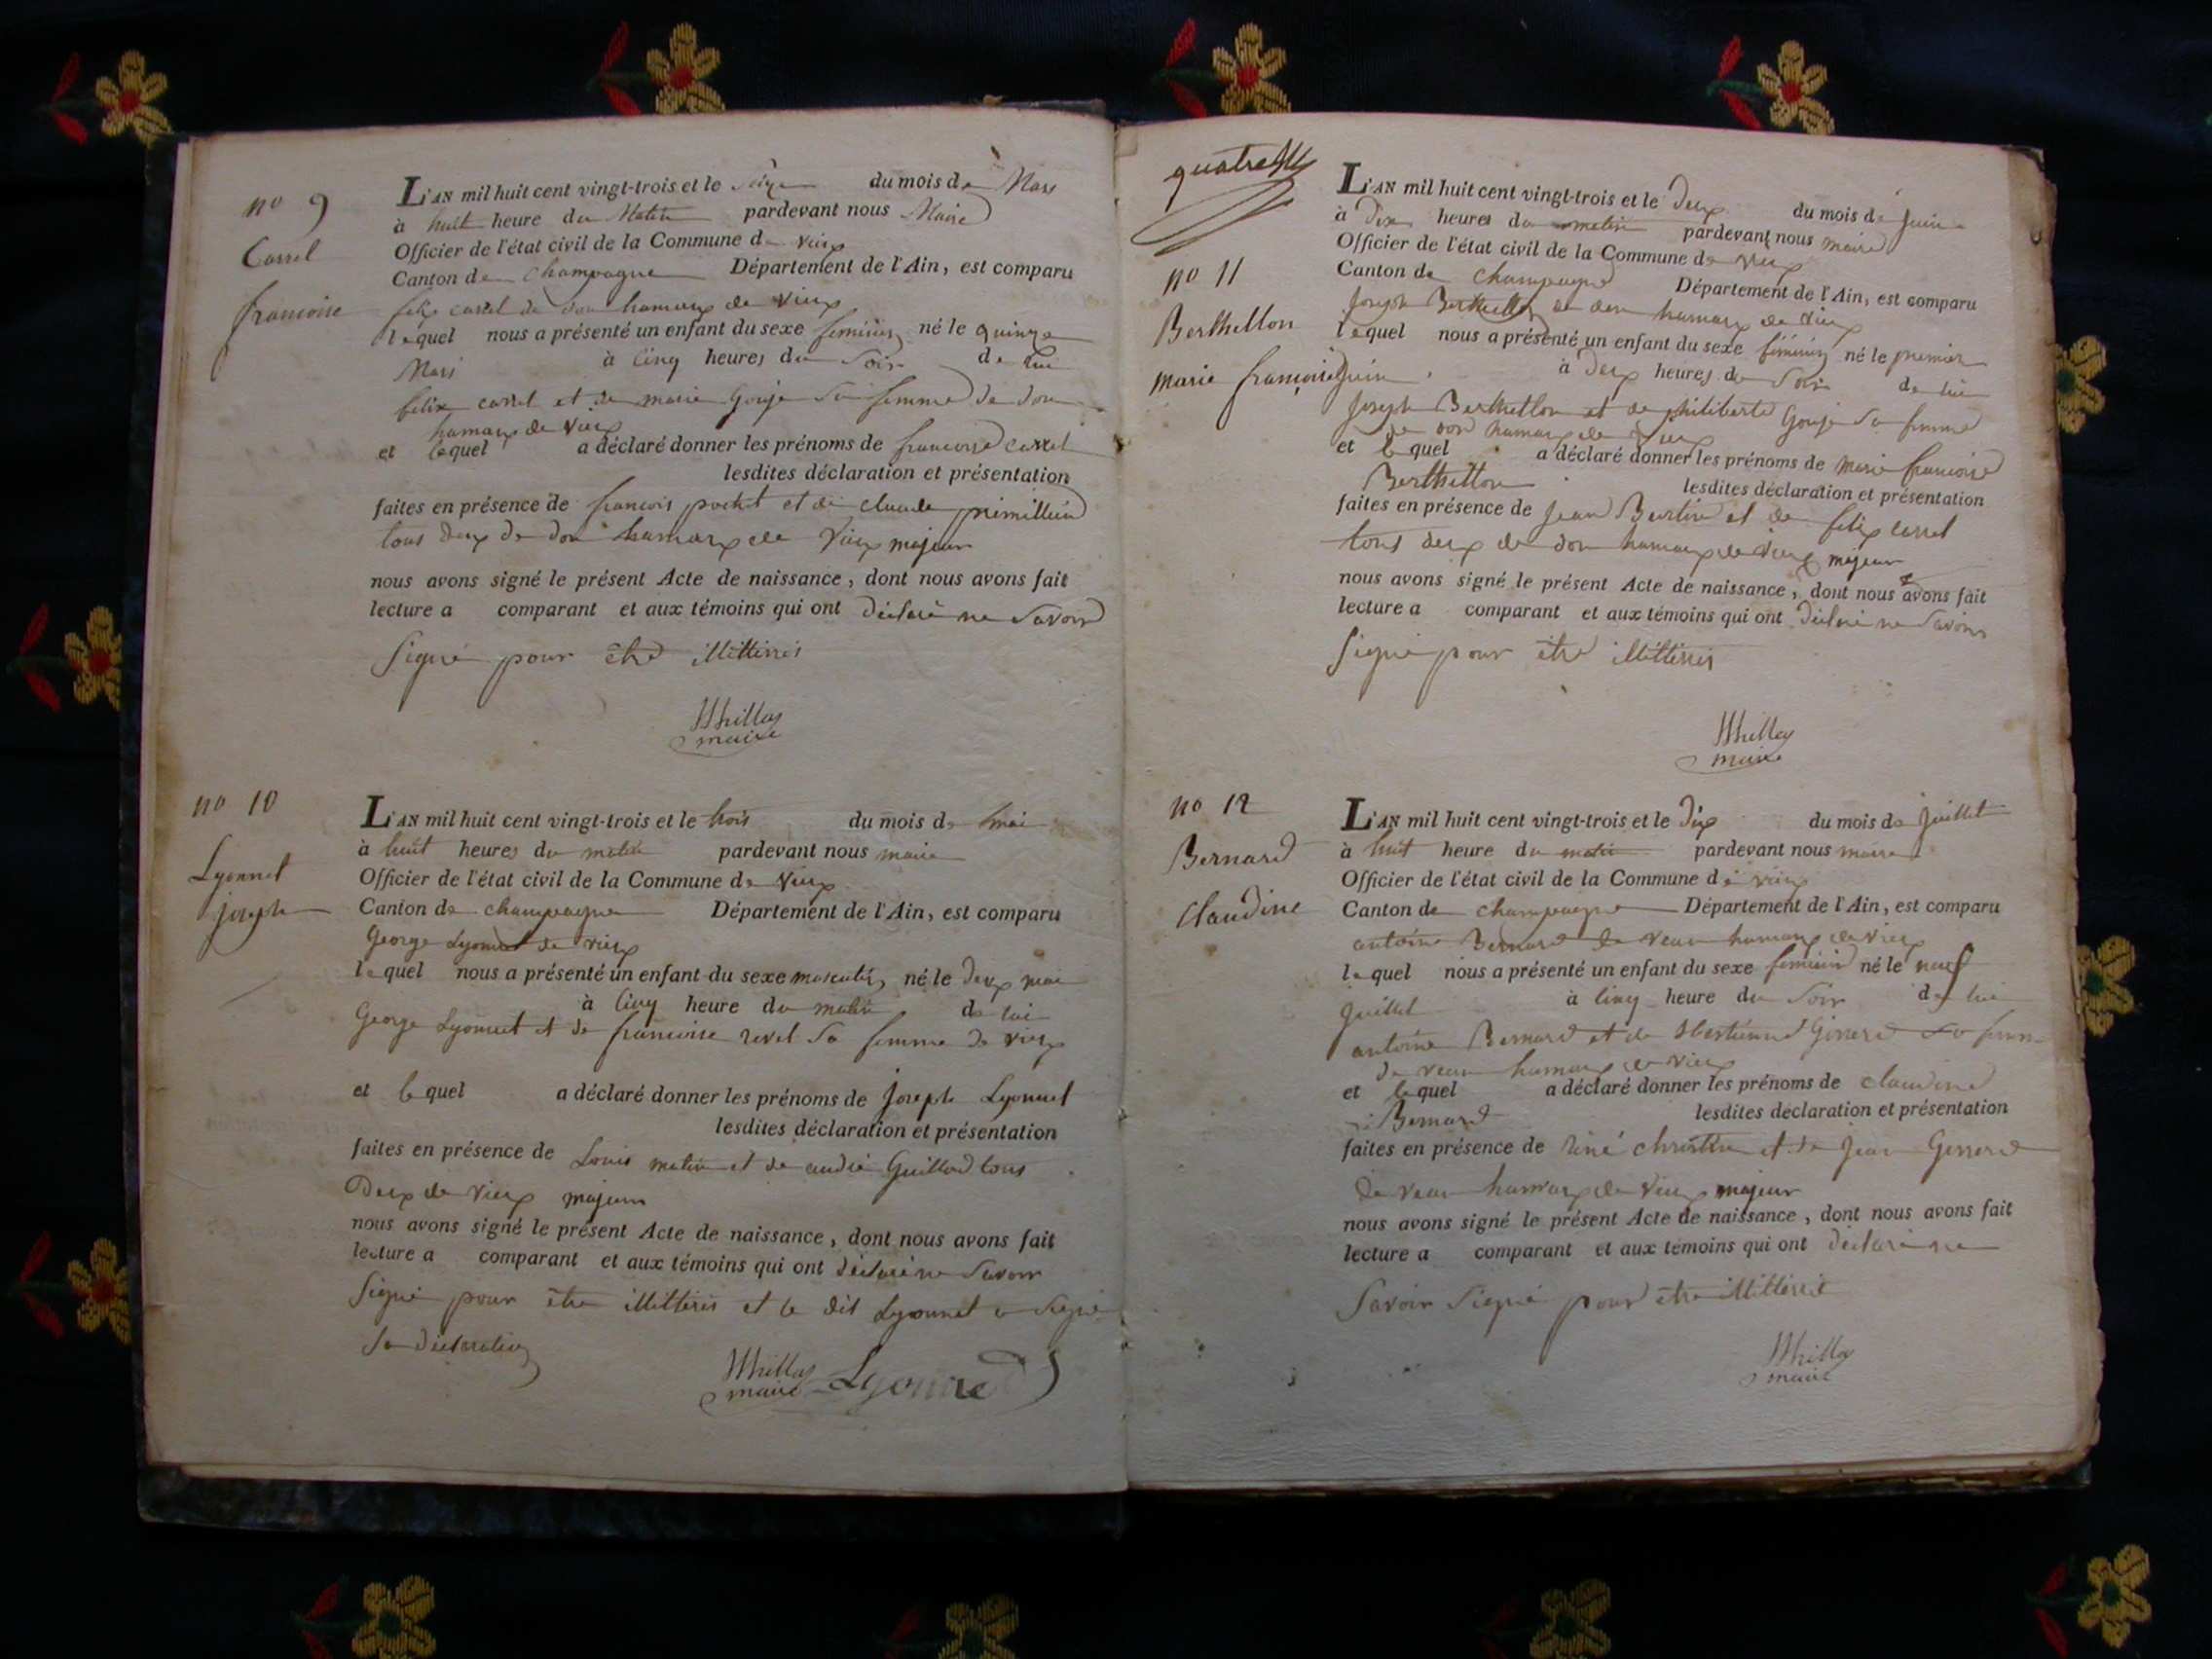 no 9
Carrel
francoise
L'AN mil huit cent vingt-trois et le seize du mois de Mars
à huit heure du Matin pardevant nous Maire
Officier de l'état civil de la Commune de vieux
Canton de Champagne Département de l'Ain, est comparu
felix carrel de don hamaux de vieux
lequel nous a présenté un enfant du sexe feminin né le quinze
Mars à cinq heures du Soir de lui
felix carrel et de marie Gouje sa femme de don
hamaux de vieux
et lequel a déclaré donner les prénoms de francoise carrel
lesdites déclaration et présentation
faites en présence de francois pochet et de claude
tous deux de don hamaux de vieux majeur
nous avons signé le présent Acte de naissance, dont nous avons fait
lecture a comparant et aux témoins qui ont déclaré ne savoir
signé pour être illitterés
maire
no 10
Lyonnet
joseph
L'AN mil huit cent vingt-trois et le trois du mois de mai
à huit heures du matin pardevant nous maire
Officier de l'état civil de la Commune de vieux
Canton de champagne Département de l'Ain, est comparu
George Lyonnet de vieux
lequel nous a présenté un enfant du sexe masculin, né le deux mai
à cinq heure du matin de lui
George Lyonnet et de francoise revel sa femme de vieux
et lequel a déclaré donner les prénoms de joseph Lyonnet
lesdites déclaration et présentation
faites en présence de Louis et de andré Guillod tous
Deux de vieux majeur
nous avons signé le présent Acte de naissance, dont nous avons fait
lecture a comparant et aux témoins qui ont déclaré ne savoir
signé pour être illitterés et le dit Lyonnet a signé
sa déclaration
maire Lyonnet
quatre
no 11
Berthellon
marie francoise
L'AN mil huit cent vingt-trois et le deux du mois de juin
à dix heures du matin pardevant nous maire
Officier de l'état civil de la Commune de vieux
Canton de champagne Département de l'Ain, est comparu
joseph Berthellon de don hamaux de vieux
lequel nous a présenté un enfant du sexe féminin né le premier
juin à deux heures du Soir de lui
joseph Berthellon et de philiberte Gouje sa femme
de don hamaux de vieux
et lequel a déclaré donner les prénoms de marie francoise
Berthellon lesdites déclaration et présentation
faites en présence de jean et de felix carrel
tous deux de don hamaux de vieux majeur
nous avons signé le présent Acte de naissance, dont nous avons fait
lecture a comparant et aux témoins qui ont déclaré ne savoir
signé pour être illitterés
maire
no 12
Bernard
Claudine
L'AN mil huit cent vingt-trois et le dix du mois de juillet
à huit heure du matin pardevant nous maire
Officier de l'état civil de la Commune de vieux
Canton de champagne Département de l'Ain, est comparu
antoine Bernard de hamaux de vieux
lequel nous a présenté un enfant du sexe feminin né le neuf
juillet à cinq heure du Soir de lui
antoine Bernard et de sa femme
de hamaux de vieux
et lequel a déclaré donner les prénoms de claudine
Bernard lesdites déclaration et présentation
faites en présence de et de jean
de hamaux de vieux majeur
nous avons signé le présent Acte de naissance, dont nous avons fait
lecture a comparant et aux témoins qui ont déclaré ne
savoir signé pour être illitteré
maire